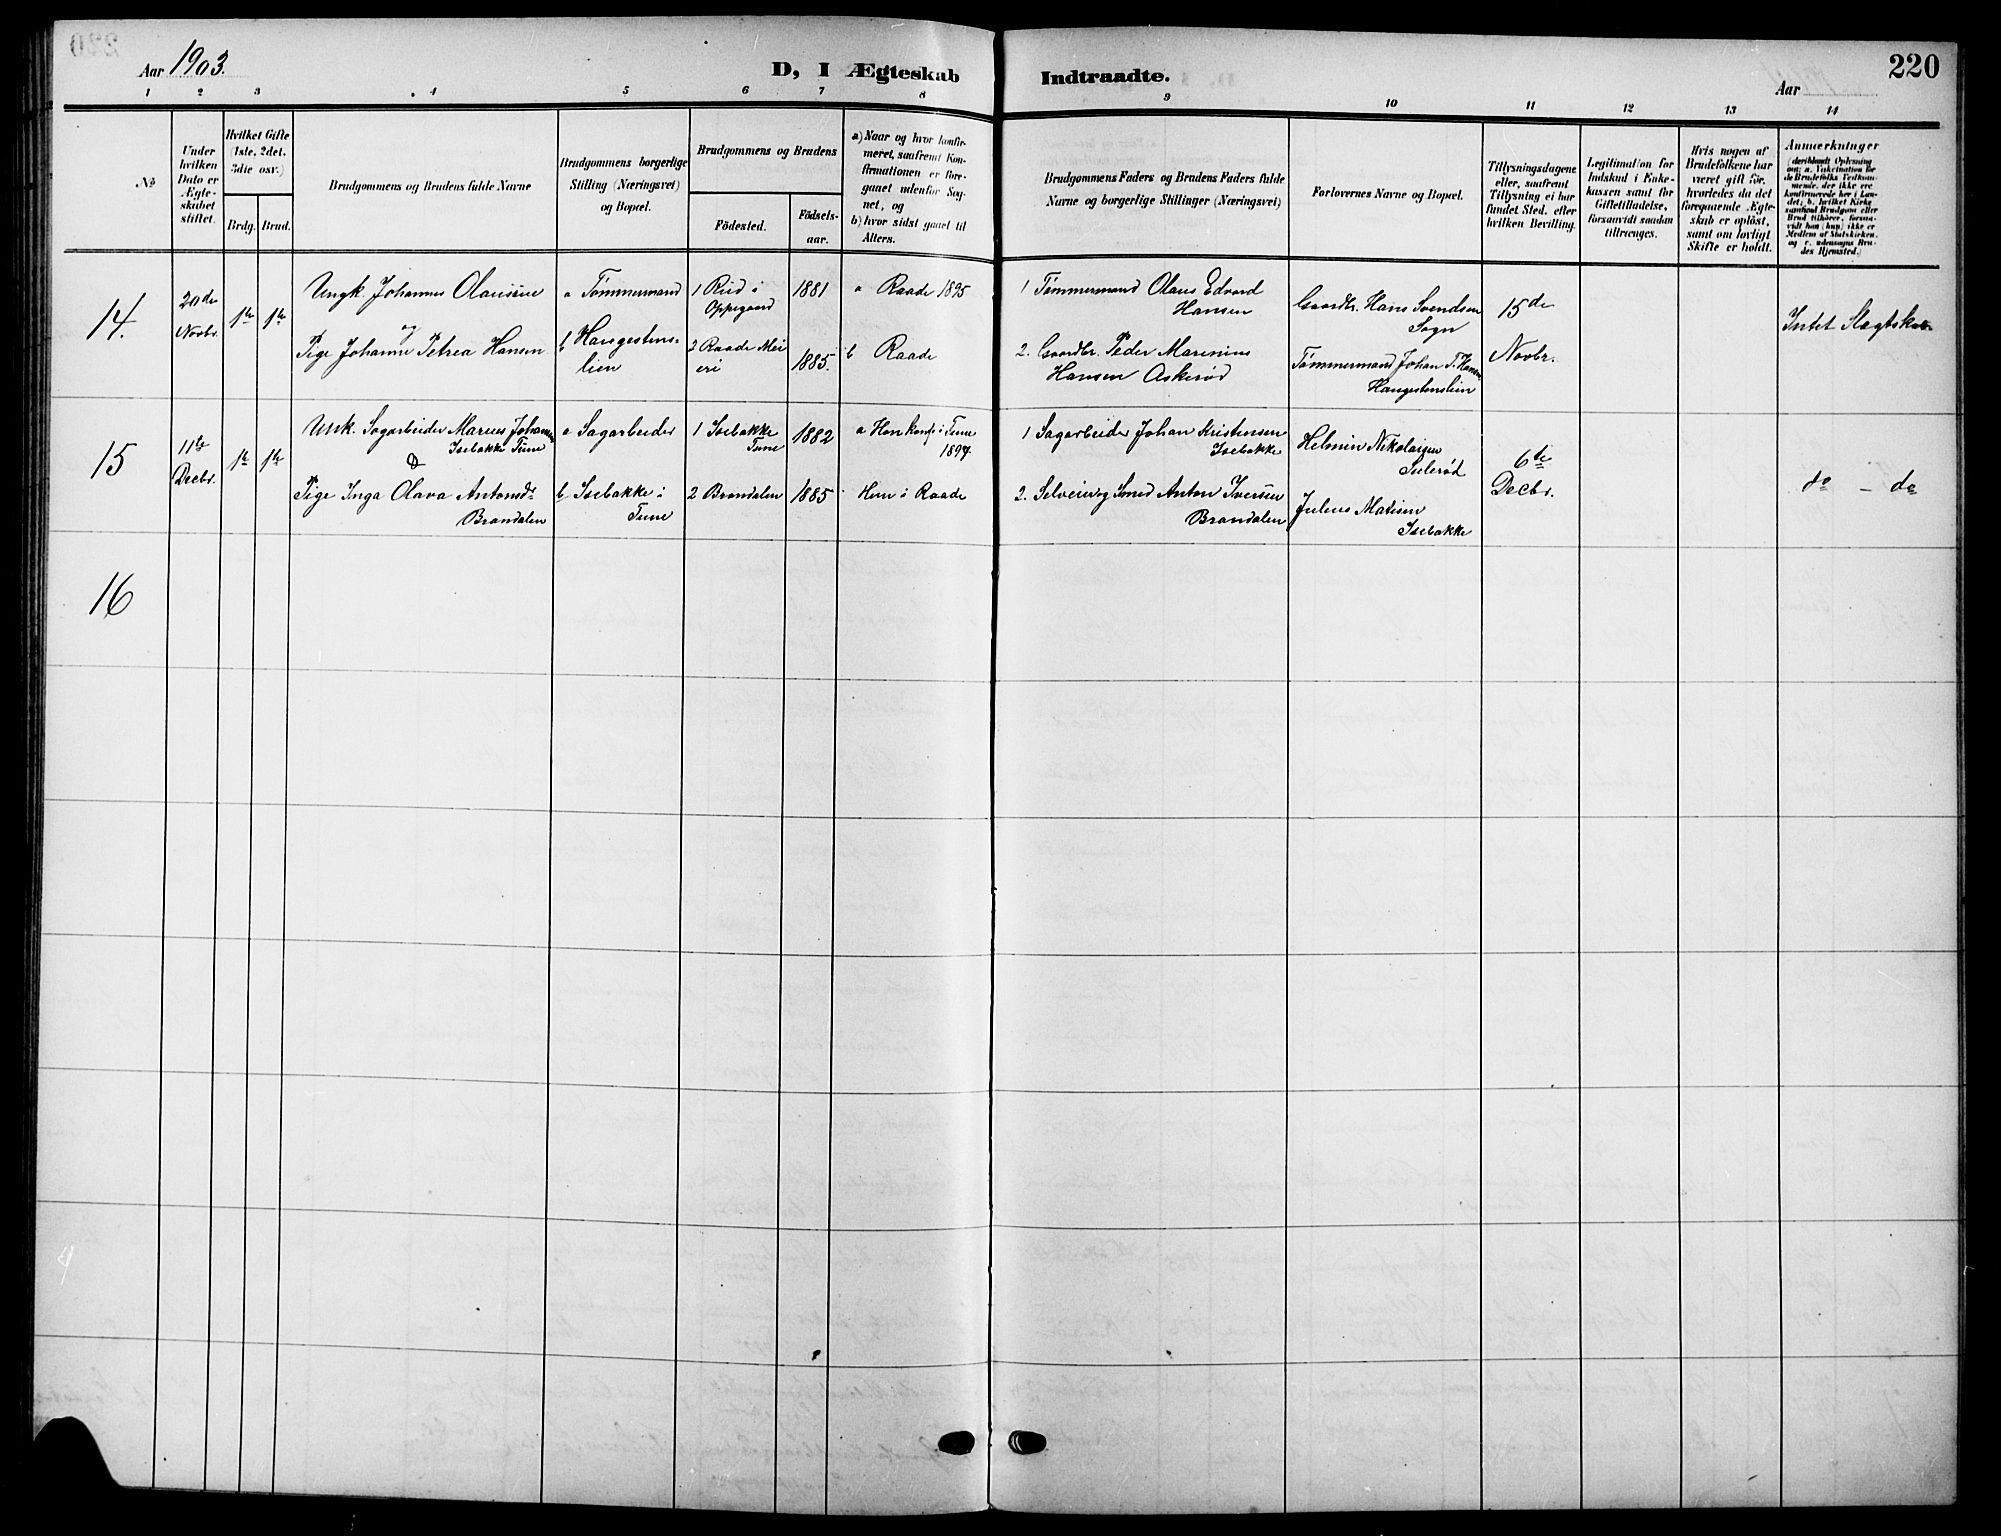 Aar 1903.
D, I Ægteskab
Indtraadte.
220
Aar
1 2 3 4 5 6 7 8
9 10 11 12 13 14
No
Under hvilken Dato er Ægteskabet stiftet.
Hvilket Gifte (1ste, 2det, 3die osv.)
Brdg. Brud.
Brudgommens og Brudens fulde Navne
Brudgommens borgerlige Stilling (Næringsvei) og Bopæl.
Brudgommens og Brudens
Födested.
Födsels-aar.
a) Naar og hvor konfirmeret, saafremt Konfirmationen er foregaaet udenfor Sognet, og
b) hvor sidst gaaet til Alters.
Brudgommens Faders og Brudens Faders fulde Navne og borgerlige Stillinger (Næringsvei)
Forlovernes Navne og Bopæl.
Tillysningsdagene eller, saafremt Tillysning ei har fundet Sted, efter hvilken Bevilling.
Legitimation for Indskud i Enkekassen samt for Giftetilladelse, forsaavidt saadan tiltrænges.
Hvis nogen af Brudefolkene har været gift för, hvorledes da det foregaaende Ægteskab er oplöst, samt om lovligt Skifte er holdt.
Anmærkninger
14.
20de Novbr.
1te 1te
Ungk. Johannes Olaussen
og
Pige Johanne Petrea Hansen
a Tømmermand
b Hangestenslien
1 Rud i Oppegaard
2 Raade Meieri
1881
1885.
a Raade 1895
b Raade
1 Tømmermand Olaus Edvard Hansen
2. Gaardbr. Peder Marenius Hansen Askerød
Gaardbr. Hans Svendsen Sogn
Tømmermand Johan T. Hansen Hangestenslien
15de Novbr.
Intet Slægtskab
15
11te Decbr.
1te 1te
Unk. Sagarbeider Marius Johansen Isebakke Tune
&
Pige Inga Olava Antonsdr Brandalen
a Sagarbeider
b Isebakke i Tune
1 Isebakke Tune
2 Brandalen
1882
1885
a Han konf. i Tune 1897
Hun i Raade
1 Sagarbeider Johan Kristensen Isebakke
2. Selveier og Smed Anton Iversen Brandalen
Helmin Nikolaisen
Julius Matisen Isebakke
6te Decbr.
do – do
16